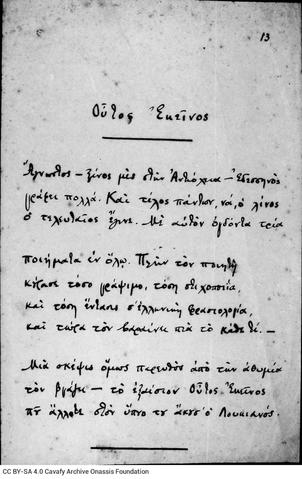 13
Οὗτος Ἐκεῖνος
Ἄγνωστος — ξένος μὲς στὴν Ἀντιόχεια — Ἐδεσσηνὸς
γράφει πολλά. Καὶ τέλος πάντων, νά, ὁ λίνος
ὁ τελευταῖος ἔγινε. Μὲ αὐτὸν ὀγδόντα τρία
ποιήματα ἐν ὅλῳ. Πλὴν τὸν ποιητὴ
κούρασε τόσο γράψιμο, τόση στιχοποιΐα,
καὶ τόση ἔντασις σ' ἑλληνικὴ φρασιολογία,
καὶ τώρα τὸν βαραίνει πιὰ τὸ κάθε τί. —
Μιὰ σκέψις ὅμως παρευθὺς ἀπὸ τὴν ἀθυμία
τὸν βγάζει — τὸ ἐξαίσιον Οὗτος Ἐκεῖνος
ποὺ ἄλλοτε στὸν ὕπνο του ἄκουσε ὁ Λουκιανός.
CC BY-SA 4.0 Cavafy Archive Onassis Foundation